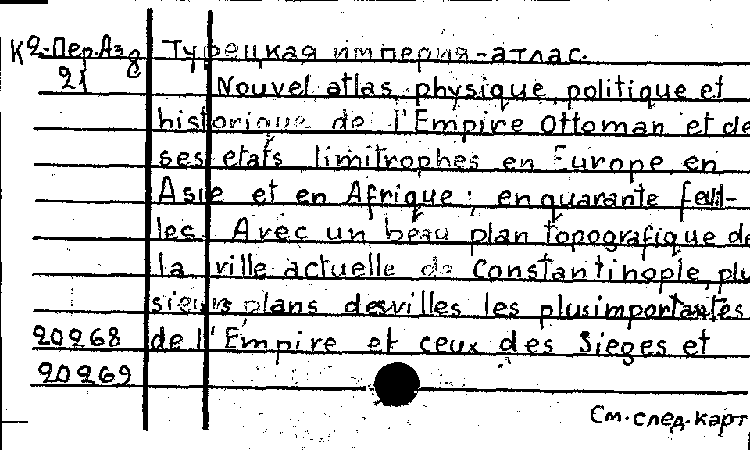 К2-Пер.Аз Турецкая империя-атлас.
8
21 Nouvel atlas physique politique et
historique de l'Empire Ottoman et de
ses etats limitrophes en Europe en
Asie et en Afrique; en quarante feuil-
les. Avec un beau plan topografique de
la ville actuelle de Constantinople, plu
sieurs plans des villes les plus importantes
20268 de l'Empire et ceux des Sieges et
20269
См.след.карт